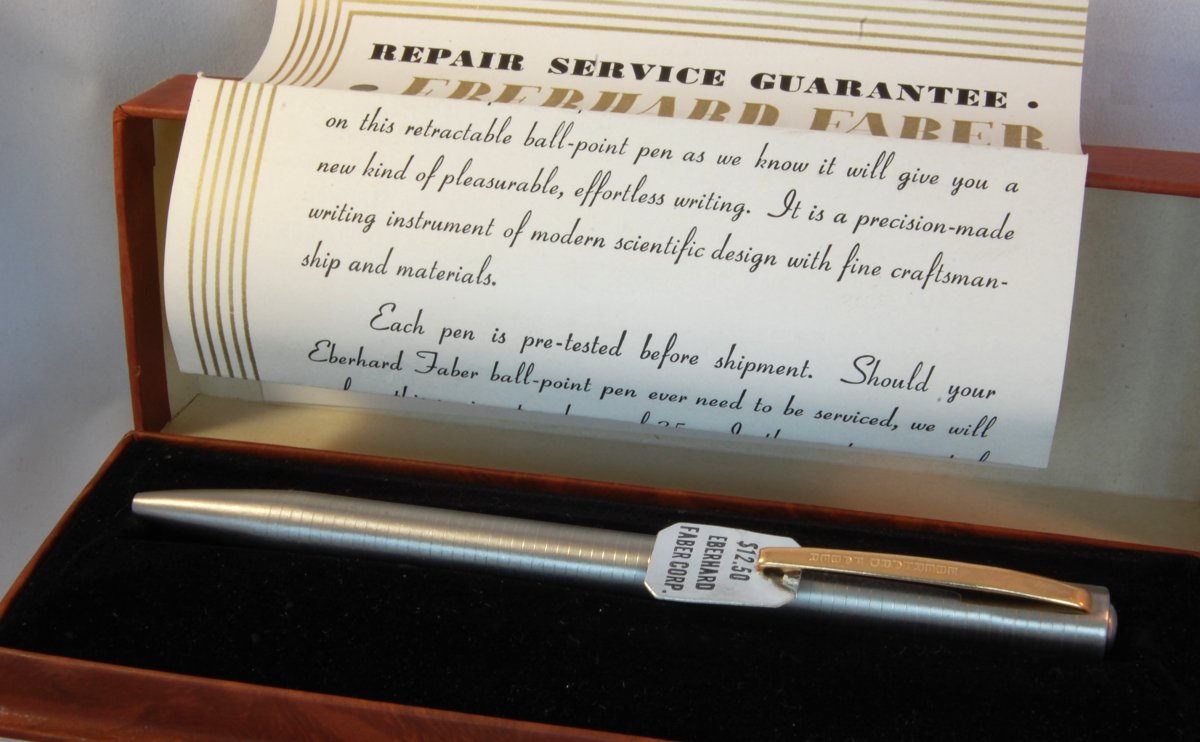 REPAIR SERVICE GUARANTEE •
• EBERHARD FABER
on this retractable ball-point pen as we know it will give you a
new kind of pleasurable, effortless writing. It is a precision-made
writing instrument of modern scientific design with fine craftsman-
ship and materials.
Each pen is pre-tested before shipment. Should your
Eberhard Faber ball-point pen ever need to be serviced, we will
$12.50
EBERHARD
FABER CORP.
EBERHARD FABER